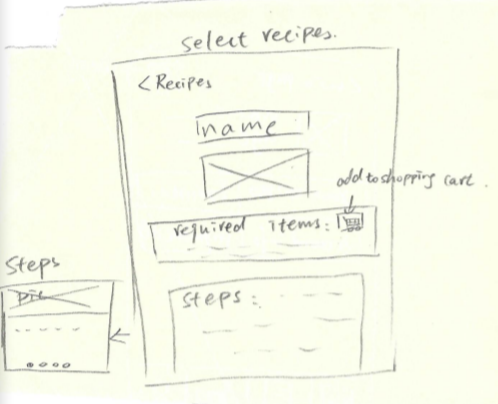 select recipes.
< Recipes
name
add to shopping cart.
required items:
steps:
Steps
pic